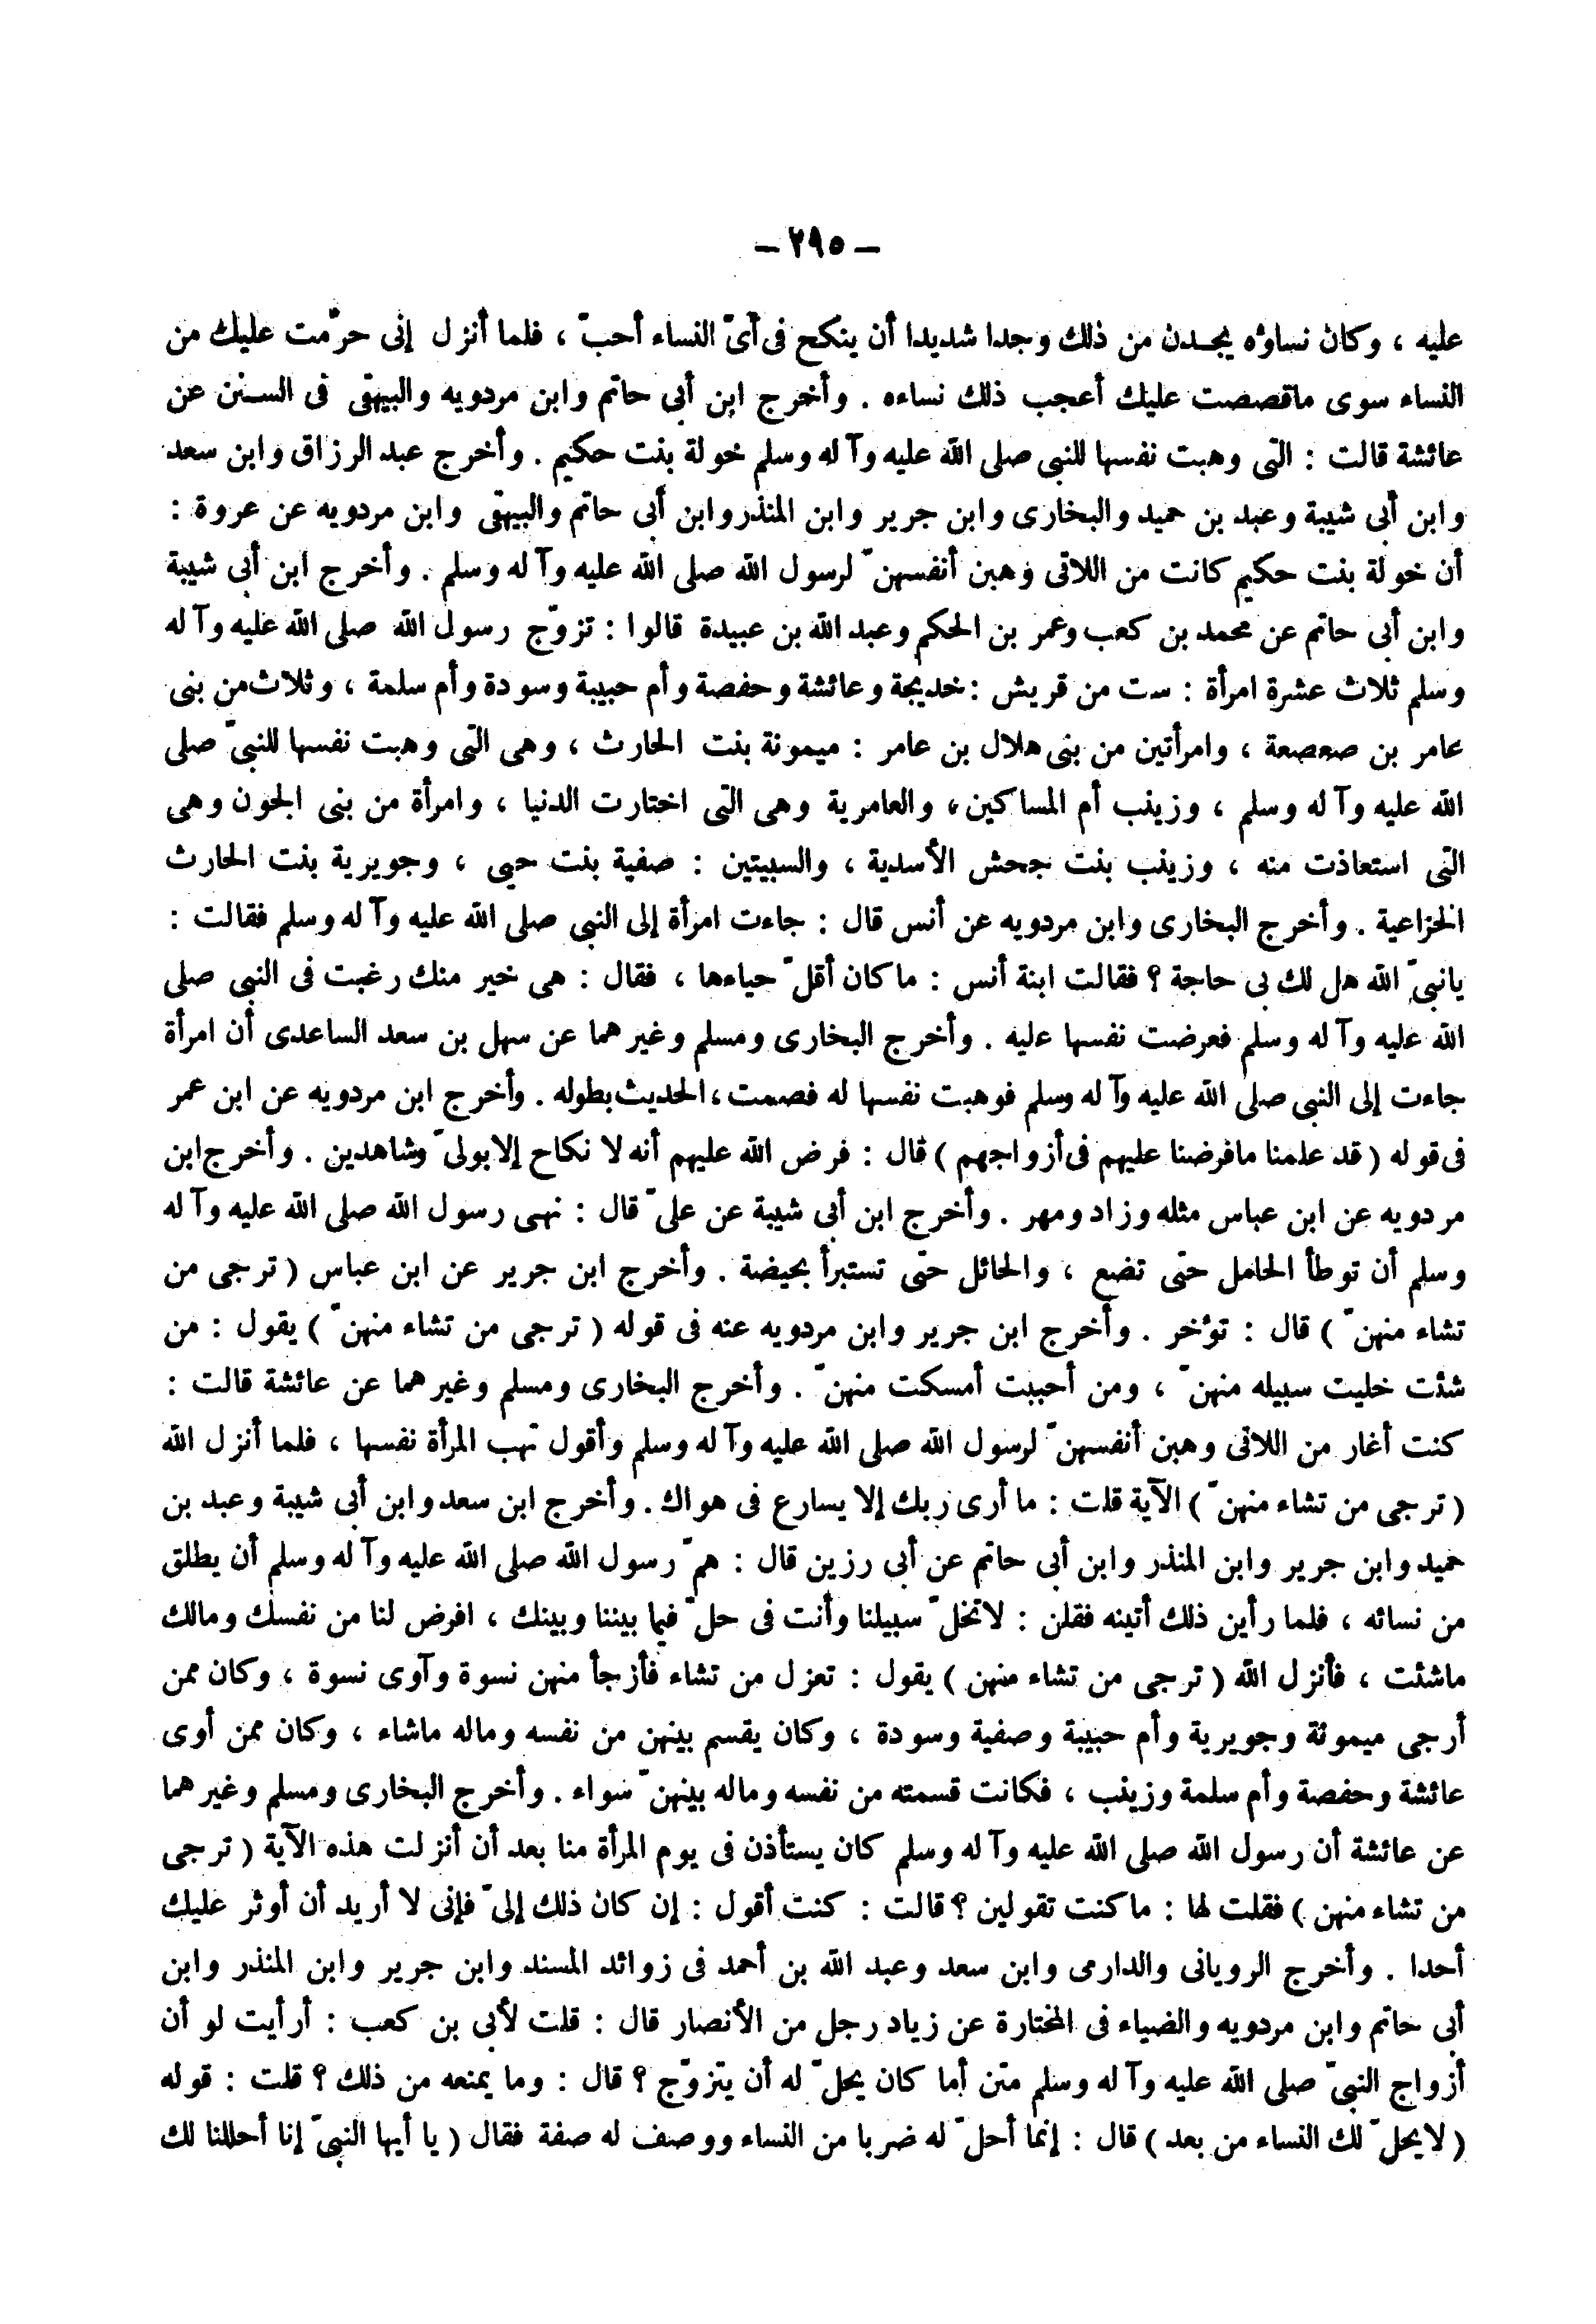 — ٢٩٥ —
عليه ، وكان نساؤه يجـدن من ذلك وجدا شديدا أن ينكح فى أىّ النساء أحبّ ، فلما أنزل إنى حرّمت عليك من
النساء سوى ماقصصت عليك أعجب ذلك نساءه . وأخرج ابن أبى حاتم وابن مردويه والبيهقى فى السـنن عن
عائشة قالت : التى وهبت نفسها للنبى صلى الله عليه وآ له وسلم خولة بنت حكيم . وأخرج عبد الرزاق وابن سعد
وابن أبى شيبة وعبد بن حميد والبخارى وابن جرير وابن المنذر وابن أبى حاتم والبيهقى وابن مردويه عن عروة :
أن خولة بنت حكيم كانت من اللاتى وهبن أنفسهنّ لرسول الله صلى الله عليه وآ له وسلم . وأخرج ابن أبى شيبة
وابن أبى حاتم عن محمد بن كعب وعمر بن الحكم وعبد الله بن عبيدة قالوا : تزوّج رسول الله صلى الله عليه وآ له
وسلم ثلاث عشرة امرأة : ست من قريش : خديجة وعائشة وحفصة وأم حبيبة وسودة وأم سلمة ، وثلاث من بنى
عامر بن صعصعة ، وامرأتين من بنى هلال بن عامر : ميمونة بنت الحارث ، وهى التى وهبت نفسها للنبىّ صلى
الله عليه وآ له وسلم ، وزينب أم المساكين ، والعامرية وهى التى اختارت الدنيا ، وامرأة من بنى الجون وهى
التى استعاذت منه ، وزينب بنت جحش الأسدية ، والسبيتين : صفية بنت حيى ، وجويرية بنت الحارث
الخزاعية . وأخرج البخارى وابن مردويه عن أنس قال : جاءت امرأة إلى النبى صلى الله عليه وآ له وسلم فقالت :
يانبىّ الله هل لك بى حاجة ؟ فقالت ابنة أنس : ما كان أقلّ حياءها ، فقال : هى خير منك رغبت فى النبى صلى
الله عليه وآ له وسلم فعرضت نفسها عليه . وأخرج البخارى ومسلم وغيرهما عن سهل بن سعد الساعدى أن امرأة
جاءت إلى النبى صلى الله عليه وآ له وسلم فوهبت نفسها له فصمت ، الحديث بطوله . وأخرج ابن مردويه عن ابن عمر
فى قوله ( قد علمنا مافرضنا عليهم فى أزواجهم ) قال : فرض الله عليهم أنه لا نكاح إلا بولىّ وشاهدين . وأخرج ابن
مردويه عن ابن عباس مثله وزاد ومهر . وأخرج ابن أبى شيبة عن علىّ قال : نهى رسول الله صلى الله عليه وآ له
وسلم أن توطأ الحامل حتى تضع ، والحائل حتى تستبرأ بحيضة . وأخرج ابن جرير عن ابن عباس ( ترجى من
تشاء منهنّ ) قال : تؤخر . وأخرج ابن جرير وابن مردويه عنه فى قوله ( ترجى من تشاء منهنّ ) يقول : من
شئت خليت سبيله منهنّ ، ومن أحببت أمسكت منهنّ . وأخرج البخارى ومسلم وغيرهما عن عائشة قالت :
كنت أغار من اللاتى وهبن أنفسهنّ لرسول الله صلى الله عليه وآ له وسلم وأقول تهب المرأة نفسها ، فلما أنزل الله
( ترجى من تشاء منهنّ ) الآية قلت : ما أرى ربك إلا يسارع فى هواك . وأخرج ابن سعد وابن أبى شيبة وعبد بن
حميد وابن جرير وابن المنذر وابن أبى حاتم عن أبى رزين قال : همّ رسول الله صلى الله عليه وآ له وسلم أن يطلق
من نسائه ، فلما رأين ذلك أتينه فقلن : لاتخلّ سبيلنا وأنت فى حلّ فيما بيننا وبينك ، افرض لنا من نفسك ومالك
ماشئت ، فأنزل الله ( ترجى من تشاء منهن ) يقول : تعزل من تشاء فأرجأ منهن نسوة وآوى نسوة ، وكان ممن
أرجى ميمونة وجويرية وأم حبيبة وصفية وسودة ، وكان يقسم بينهن من نفسه وماله ماشاء ، وكان ممن أوى
عائشة وحفصة وأم سلمة وزينب ، فكانت قسمته من نفسه وماله بينهنّ سواء . وأخرج البخارى ومسلم وغيرهما
عن عائشة أن رسول الله صلى الله عليه وآ له وسلم كان يستأذن فى يوم المرأة منا بعد أن أنزلت هذه الآية ( ترجى
من تشاء منهن ) فقلت لها : ما كنت تقولين ؟ قالت : كنت أقول : إن كان ذلك إلىّ فإنى لا أريد أن أوثر عليك
أحدا . وأخرج الرويانى والدارمى وابن سعد وعبد الله بن أحمد فى زوائد المسند وابن جرير وابن المنذر وابن
أبى حاتم وابن مردويه والضياء فى المختارة عن زياد رجل من الأنصار قال : قلت لأبى بن كعب : أرأيت لو أن
أزواج النبىّ صلى الله عليه وآ له وسلم متن أما كان يحلّ له أن يتزوّج ؟ قال : وما يمنعه من ذلك ؟ قلت : قوله
( لايحلّ لك النساء من بعد ) قال : إنما أحلّ له ضربا من النساء ووصف له صفة فقال ( يا أيها النبىّ إنا أحللنا لك